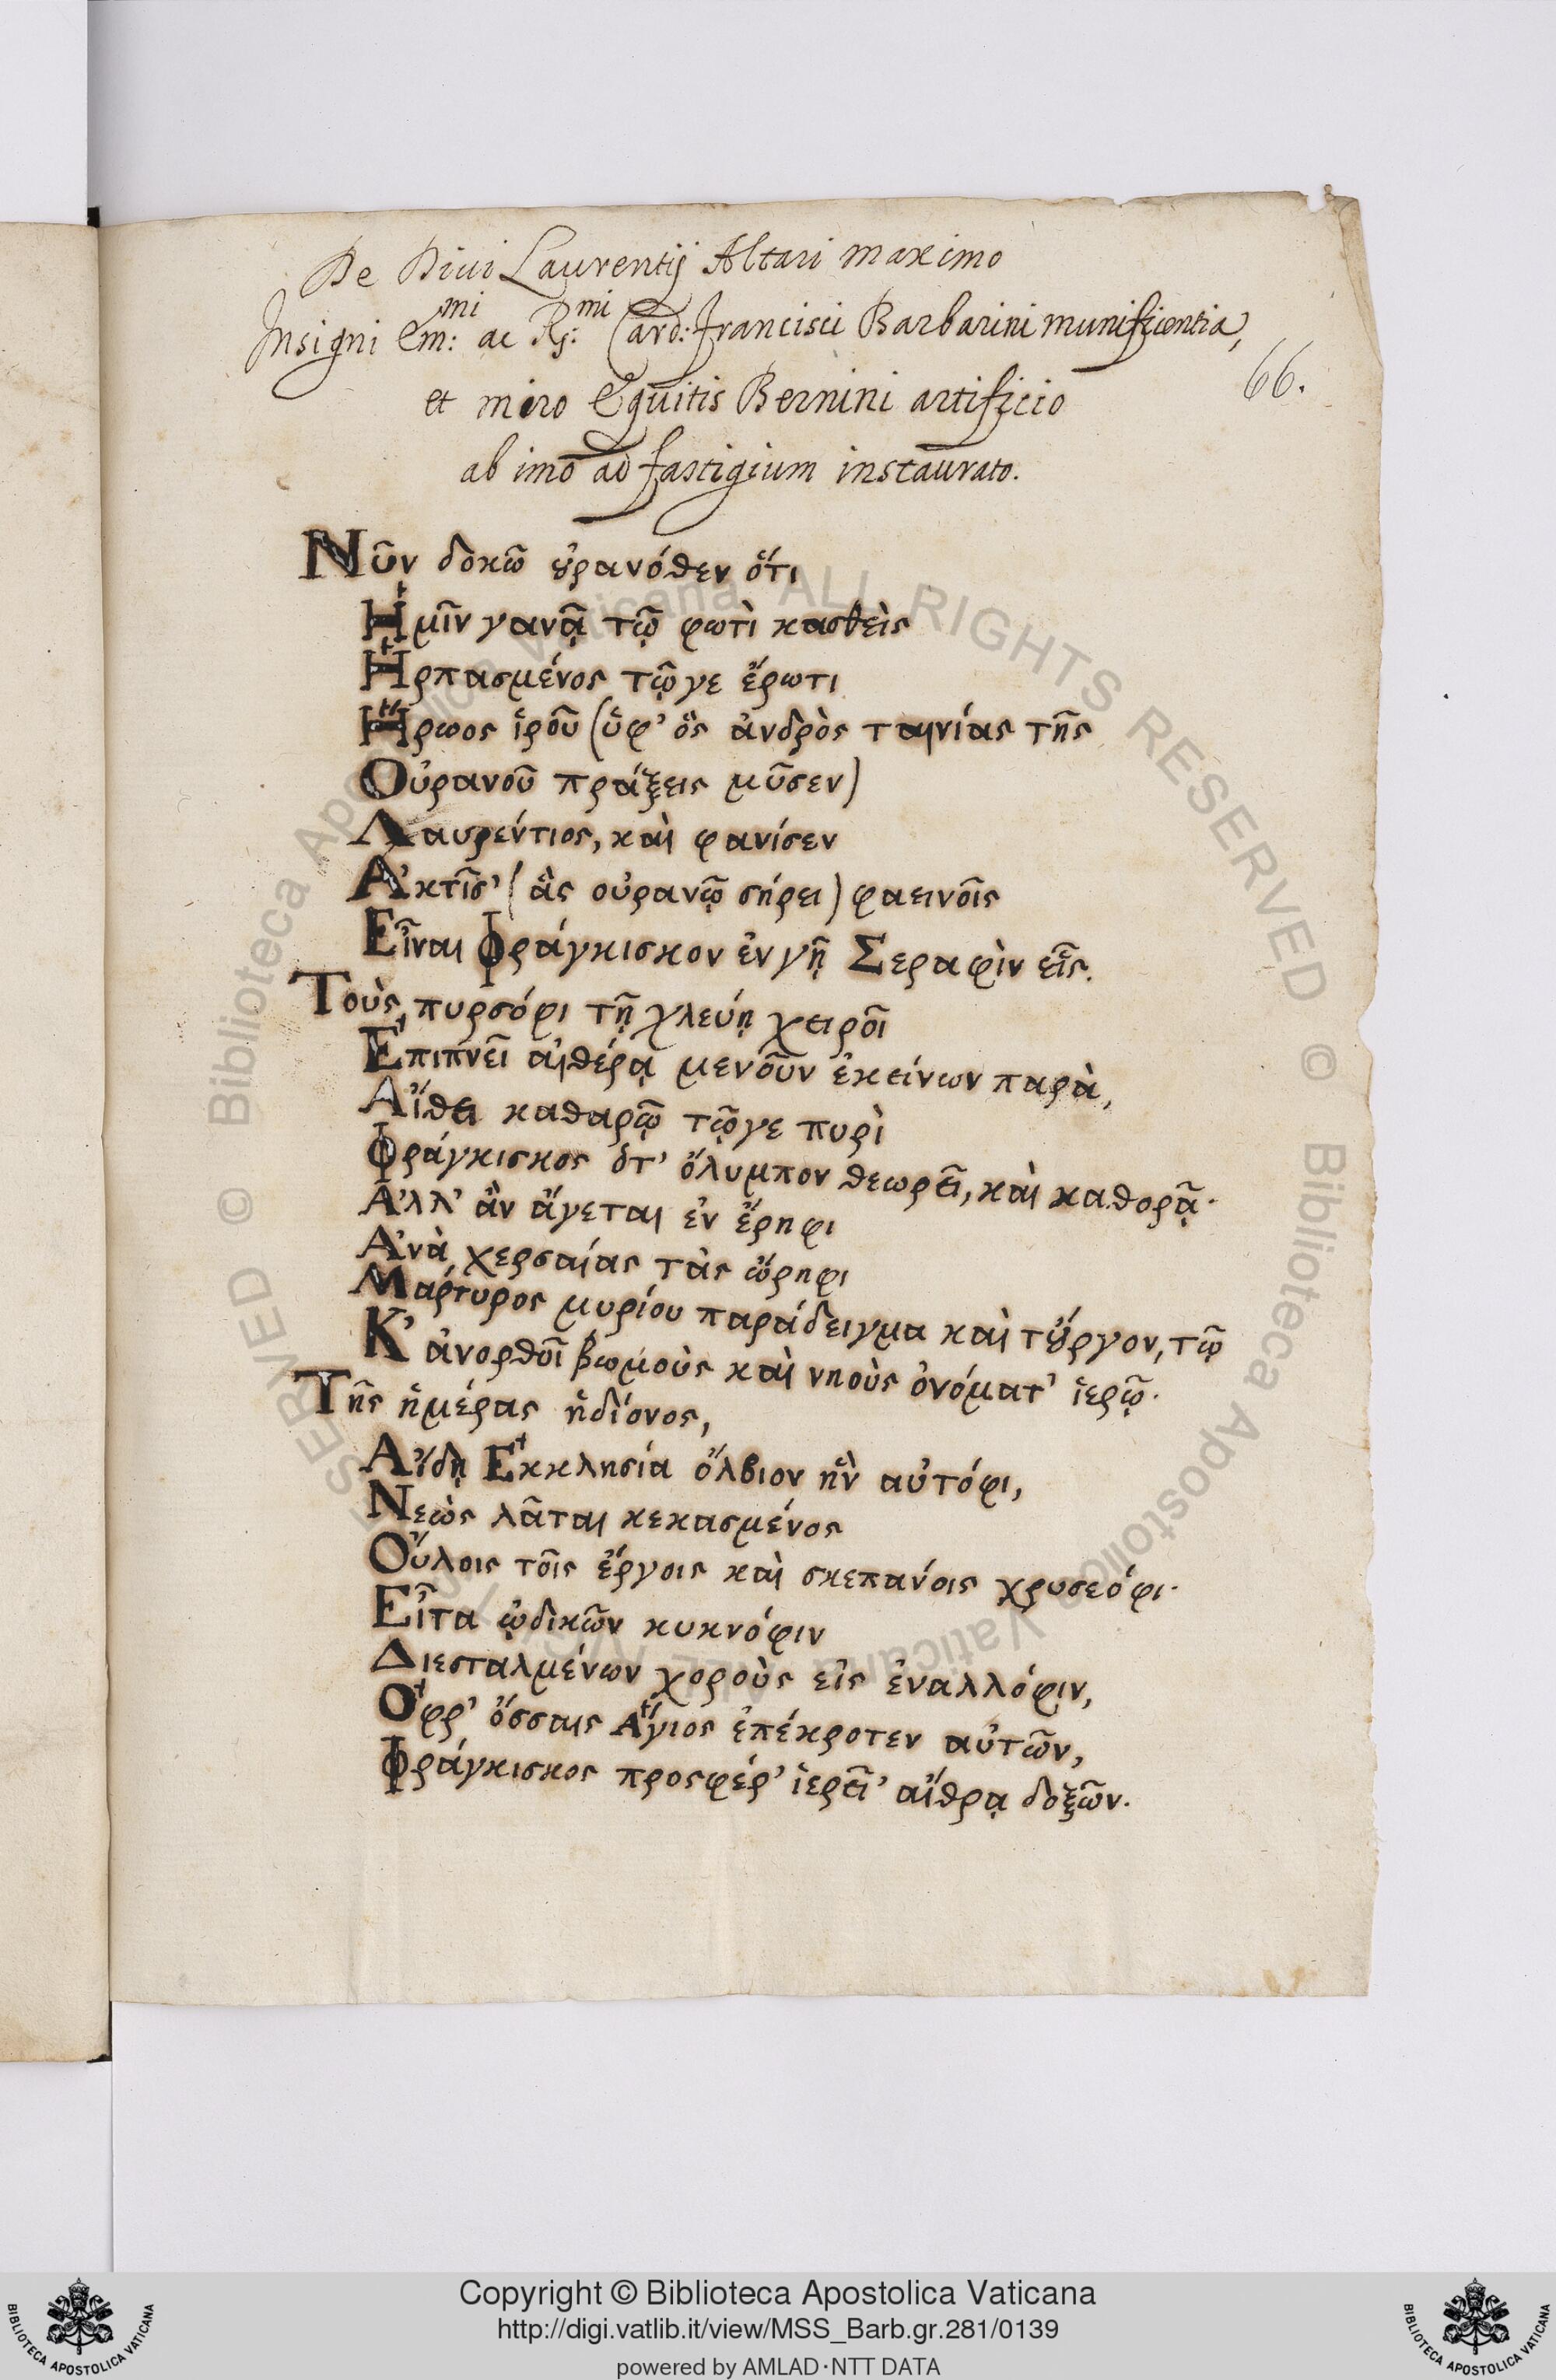 De Diui Laurentij Altari maximo
Insigni Em:mi ac R:mi Card: Francisci Barbarini munificentia,
66.
et miro Equitis Bernini artificio
ab imo ad fastigium instaurato.
Νῦν δοκῶ ȣ̓ρανόθεν ὅτι
Ἡμῖν γανᾷ τῷ φωτὶ κασθεὶς
Ἡρπασμένος τῷγε ἔρωτι
Ἥρωος ἱροῦ (ὑφ' ὃς ἀνδρὸς ταινίας τῆς
Οὐρανοῦ πράξεις μῦσεν)
Λαυρέντιος, καὶ φανίσεν
Ἀκτῖσ' (ἃς οὐρανῷ σήρει) φαεινοῖς
Εἶναι Φράγκισκον ἐν γῇ Σεραφὶν εἷς.
Τοὺς πυρσόφι τῇ χλεύῃ χειροῖ
Ἐπιπνεῖ αἰθέρᾳ μενοῦν ἐκείνων παρὰ,
Αἴθει καθαρῷ τῷγε πυρὶ
Φράγκισκος ὅτ' ὄλυμπον θεωρεῖ, καὶ καθορᾷ·
Ἀλλ' ἂν ἄγεται ἐν ἔρηφι
Ἀνὰ χερσαίας τὰς ὥρηφι
Μάρτυρος μυρίου παράδειγμα καὶ τȣ̓́ργον, τῷ
Κ' ἀνορθοῖ βωμοὺς καὶ νηοὺς ὀνόματ' ἱερῷ·
Τῆς ἡμέρας ἡδίονος,
ᾌδῃ Ἐκκλησία ὄλβιον ἣν αὐτόφι,
Νεὼς λᾶται κεκασμένος
Οὔλοις τοῖς ἔργοις καὶ σκεπανόις χρυσεόφι·
Εἶτα ᾠδικῶν κυκνόφιν
Διεσταλμένων χοροὺς εἰς ἐναλλόφιν,
Ὀφρ' ὄσσαις Ἅγιος ἐπέκροτεν αὐτῶν,
Φράγκισκος προσφέρ' ἱερεῖ' αἴθρᾳ δοξῶν.
© Biblioteca Apostolica Vaticana ALL RIGHTS RESERVED © Biblioteca Apostolica Vaticana ALL RIGHTS RESERVED
BIBLIOTECA APOSTOLICA VATICANA
Copyright © Biblioteca Apostolica Vaticana
http://digi.vatlib.it/view/MSS_Barb.gr.281/0139
powered by AMLAD·NTT DATA
BIBLIOTECA APOSTOLICA VATICANA